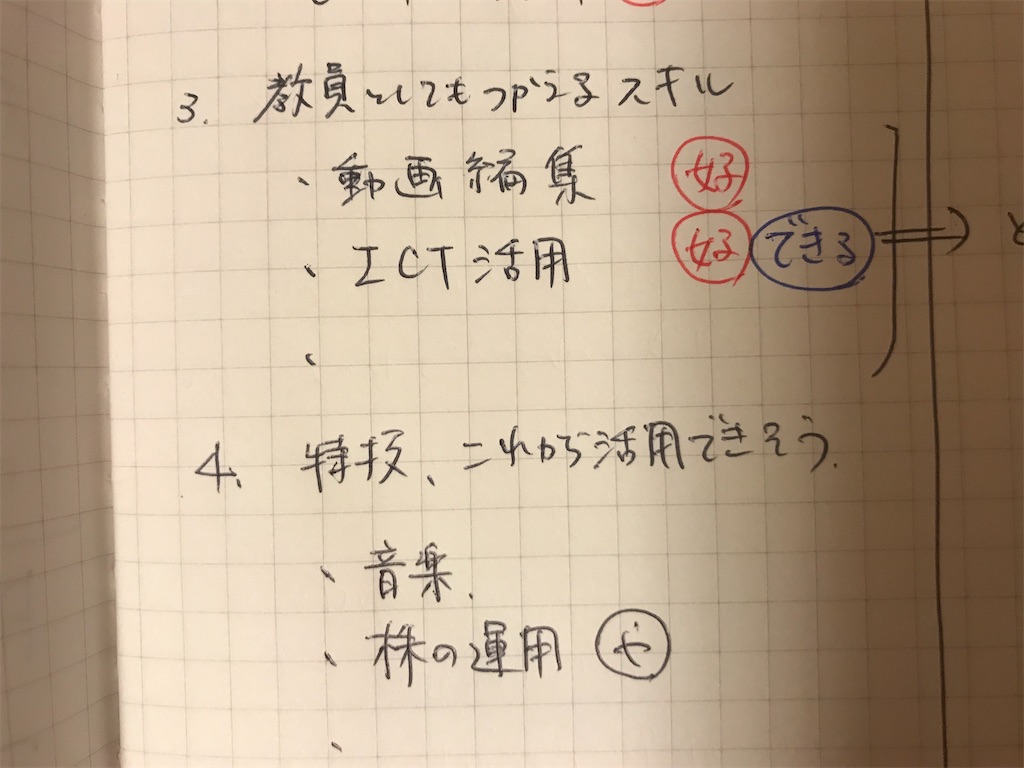 3. 教員としてもつかえるスキル
・動画編集 好
・ICT活用 好 できる
・
4. 特技、これから活用できそう.
・音楽.
・株の運用 や
・